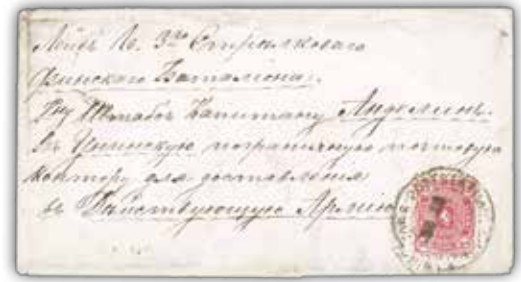 Лейбъ Гв. 3го Стрѣлковаго
Финскаго Баталіона.
Штабсъ Капитану
Въ пограничную почтовую
контору для доставленія
въ Дѣйствующую Армію